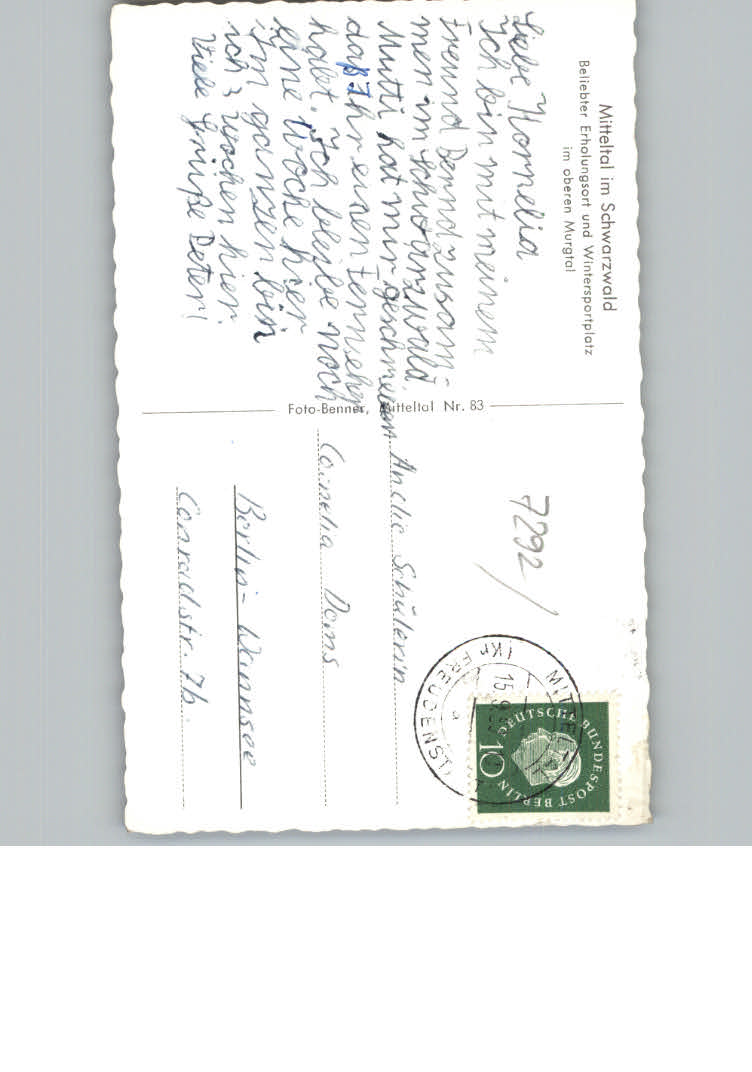 Mitteltal im Schwarzwald
Beliebter Erholungsort und Wintersportplatz
im oberen Murgtal
Liebe Kornelia
Ich bin mit meinem
Freund Bernd zusam-
men im Schwarzwald
Mutti hat mir geschrieben
daß Ihr einen Fernseher
habt. Ich bleibe noch
eine Woche hier
Im ganzen bin
ich 3 Wochen hier.
Viele Grüße Peter!
Foto-Benner, Mitteltal Nr. 83
7292/
DEUTSCHE BUNDESPOST BERLIN
10
MITTELTAL
(Kr. FREUDENST.)
15.9.
a
An die Schülerin
Cornelia Doms
Berlin-Wannsee
Conradstr. 7b.